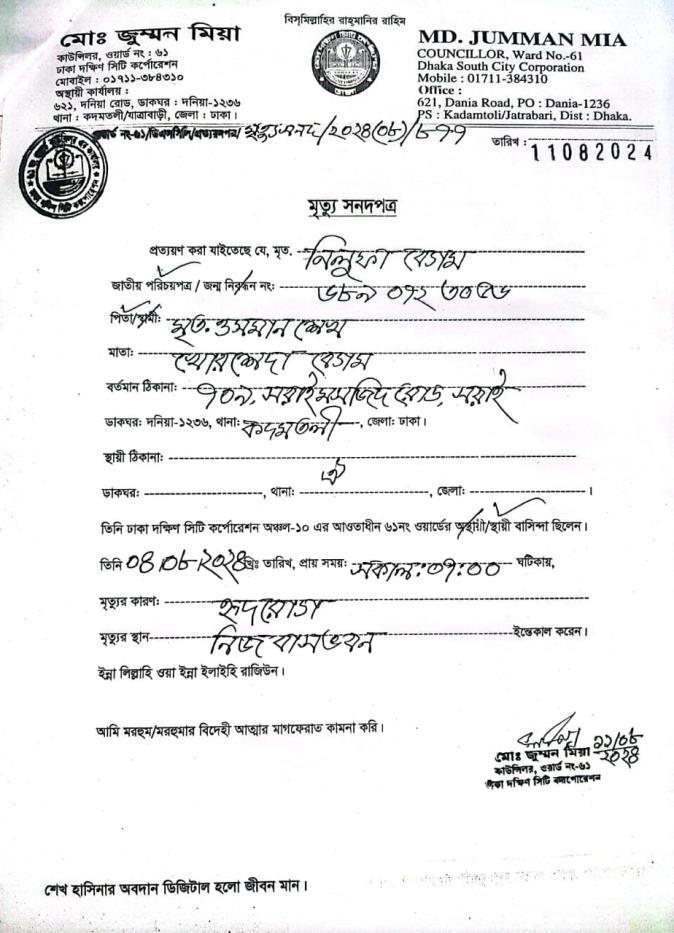 বিসমিল্লাহির রাহমানির রাহিম
মোঃ জুম্মন মিয়া
কাউন্সিলর, ওয়ার্ড নং : ৬১
ঢাকা দক্ষিণ সিটি কর্পোরেশন
মোবাইল : ০১৭১১-৩৮৪৩১০
অস্থায়ী কার্যালয় :
৬২১, দনিয়া রোড, ডাকঘর : দনিয়া-১২৩৬
থানা : কদমতলী/যাত্রাবাড়ী, জেলা : ঢাকা।
MD. JUMMAN MIA
COUNCILLOR, Ward No.-61
Dhaka South City Corporation
Mobile : 01711-384310
Office :
621, Dania Road, PO : Dania-1236
PS : Kadamtoli/Jatrabari, Dist : Dhaka.
ওয়ার্ড নং-৬১/ডিএসসিসি/প্রত্যয়নপত্র/ মৃত্যুসনদ/২০২৪(০৮)/৮৭৭
তারিখ : 11082024
মৃত্যু সনদপত্র
প্রত্যয়ণ করা যাইতেছে যে, মৃত. নিলুফা বেগম
জাতীয় পরিচয়পত্র / জন্ম নিবন্ধন নং:
পিতা/স্বামী: মৃত. ওসমান শেখ
মাতা: খোরশেদা বেগম
বর্তমান ঠিকানা: ৭০৯, সরাই মসজিদ রোড, সরাই
ডাকঘর: দনিয়া-১২৩৬, থানা: কদমতলী, জেলা: ঢাকা।
স্থায়ী ঠিকানা:
ঐ
ডাকঘর: , থানা: , জেলা: ।
তিনি ঢাকা দক্ষিণ সিটি কর্পোরেশন অঞ্চল-১০ এর আওতাধীন ৬১নং ওয়ার্ডের অস্থায়ী/স্থায়ী বাসিন্দা ছিলেন।
তিনি 08/০৮/২০২৪খ্রিঃ তারিখ, প্রায় সময়: সকাল:০৭:০০ ঘটিকায়,
মৃত্যুর কারণ: হৃদরোগ
মৃত্যুর স্থান নিজ বাসভবন ইন্তেকাল করেন।
ইন্না লিল্লাহি ওয়া ইন্না ইলাইহি রাজিউন।
আমি মরহুম/মরহুমার বিদেহী আত্মার মাগফেরাত কামনা করি।
১১/০৮
২০২৪
মোঃ জুম্মন মিয়া
কাউন্সিলর, ওয়ার্ড নং-৬১
ঢাকা দক্ষিণ সিটি কর্পোরেশন
শেখ হাসিনার অবদান ডিজিটাল হলো জীবন মান।